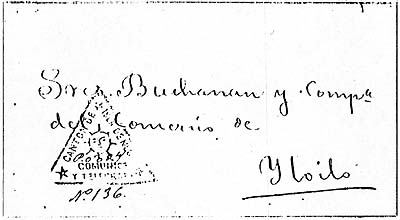 Sres Buchanan y Compa
del Comercio de
Yloilo
CANTON DE
COMUNICS
Y TELEGRAFOS
No 136.